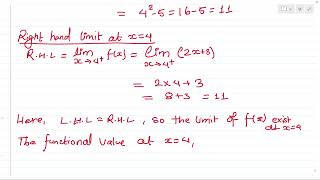 = 4²-5 = 16-5 = 11
Right hand limit at x=4
R.H.L = lim x→4⁺ f(x) = lim x→4⁺ (2x+3)
= 2×4+3
= 8+3 = 11
Here, L.H.L = R.H.L, so the limit of f(x) exist at x=4
The functional value at x=4,